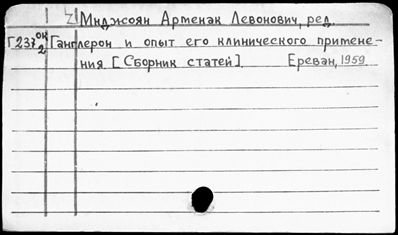 Мнджоян Арменак Левонович, ред.
Г237 ок 2 Ганглерон и опыт его клинического примене-
ния. [Сборник статей]. Ереван, 1959